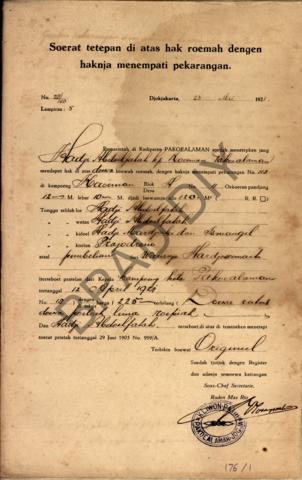 Soerat tetepan di atas hak roemah dengen
haknja menempati pekarangan.
No. 22/
Lampiran : 5
Djokjakarta, 23 Mei 1921.
Pemerintah di Kadipaten PAKOEALAMAN soedah menetepken jang
Hadji Abdoelfatah Kauman Pakoealaman
mendapet hak di atas roemah, dengen haknja menempati pekarangan No.
di kampoeng Kauman Rick
Desa Oekoeran pandjang
12 M. lebar 10 M. djadi loewasnja 120 M. R. R.
Tangga sebelah lor Hadji Abdoelfatah
wetan Hadji Abdoelfatah
kidoel Hadji Mardjoeki dan Ismangil
koelon
atsal pembelian
terseboet petelan dari Kepala kampoeng kota Pakoealaman
tertanggal 12 April 1921
No. 10 harga f 225 terbilang ( Doewa ratoes
doewa poeloeh lima roepiah )
Dan Hadji Abdoelfatah terseboet di atas di temtoeken menetepi
soerat pranatan tertanggal 29 Juni 1903 No. 959/A.
Terbikin boewat Origineel
Soedah tjotjok dengen Register
dan adanja semoewa keterangan
Sous-Chef Secretarie,
Raden Mas Rio
KLIWON PATIH
PAKOEALAMAN
BPAD DIY
176/1